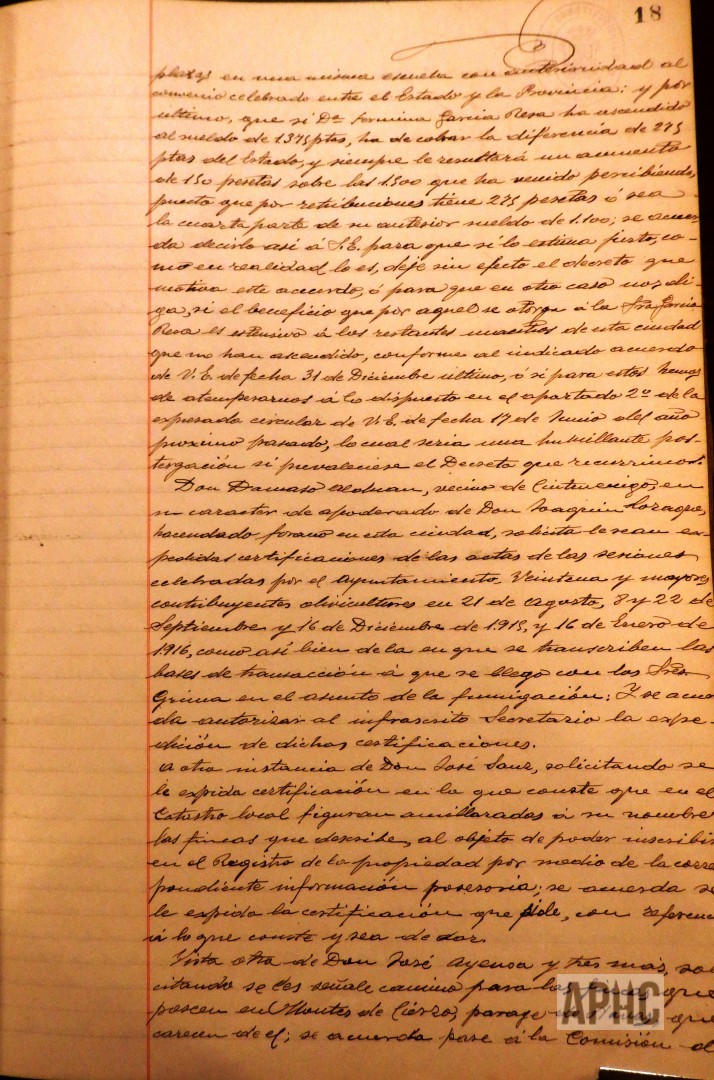 18
plazas en una misma escuela con anterioridad al
convenio celebrado entre el Estado y la Provincia: y por
ultimo, que si Dª Fermina Garcia Resa ha ascendido
al sueldo de 1375 ptas, ha de cobrar la diferencia de 275
ptas del Estado, y siempre le resultará un aumento
de 150 pesetas sobre las 1500 que ha venido percibiendo,
puesto que por retribuciones tiene 275 pesetas ó sea
la cuarta parte de su anterior sueldo de 1.100; se acuer-
da decirlo así á S.E. para que si lo estima justo, co-
mo en realidad lo es, deje sin efecto el decreto que
motiva este acuerdo, ó para que en otro caso nos di-
ga, si el beneficio que por aquel se otorga á la Sra Garcia
Resa es estensivo á los restantes maestros de esta ciudad
que no han ascendido, conforme al indicado acuerdo
de V.E. de fecha 31 de Diciembre último, ó si para estos hemos
de atemperarnos á lo dispuesto en el apartado 2º de la
expresada circular de V.E. de fecha 17 de Junio del año
proximo pasado, lo cual seria una humillante pos-
tergación si prevaleciese el Decreto que recurrimos.
Don Damaso Alduan, vecino de Cintruenigo, en
su caracter de apoderado de Don Joaquin
hacendado forano en esta ciudad, solicita le sean ex-
pedidas certificaciones de las actas de las sesiones
celebradas por el Ayuntamiento Veintena y mayores
contribuyentes olivicultores en 21 de Agosto, 8 y 22 de
Septiembre y 16 de Diciembre de 1.915, y 16 de Enero de
1.916, como así bien de la en que se transcriben las
bases de transacción á que se llegó con los Sres
Grima en el asunto de la fumigación: Y se acuer
da autorizar al infrascrito Secretario la expe-
dición de dichas certificaciones.
A otra instancia de Don José Sanz, solicitando se
le expida certificación en la que conste que en el
Catastro local figuran amillaradas á su nombre
las fincas que describe, al objeto de poder inscribir
en el Registro de la propiedad por medio de la corres
pondiente información posesoria; se acuerda se
le expida la certificación que pide, con referenc
á lo que conste y sea de dar.
Vista otra de Don José Ayensa y tres más, sol
citando se les señale camino para las que
poseen en Montes de Cierzo, paraje que
carecen de él; se acuerda pase á la Comisión d
APHC